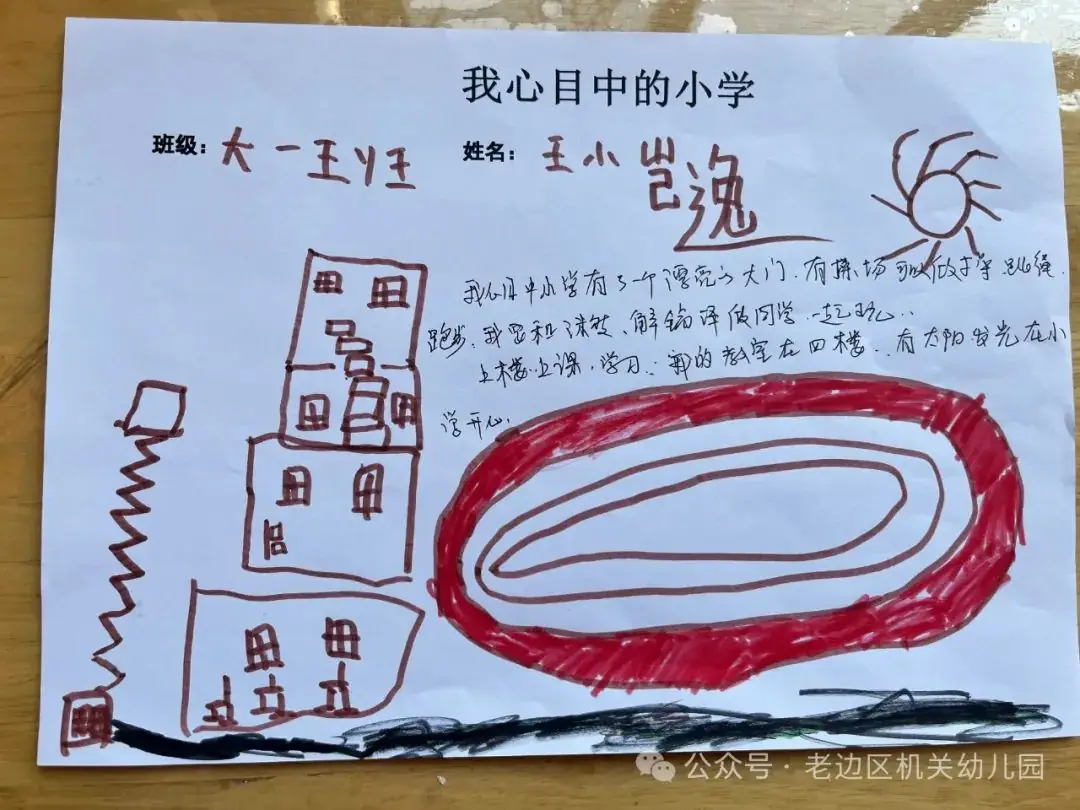 我心目中的小学
班级：大一王刂王 姓名：王小岂逸
我心目中小学有了个漂亮的大门.有操场可以做早操 跳绳.
跑步.我要和 同学.一起玩..
上楼.上课.学习..我的教室在四楼..有太阳发光在小
学开心.
公众号·老边区机关幼儿园